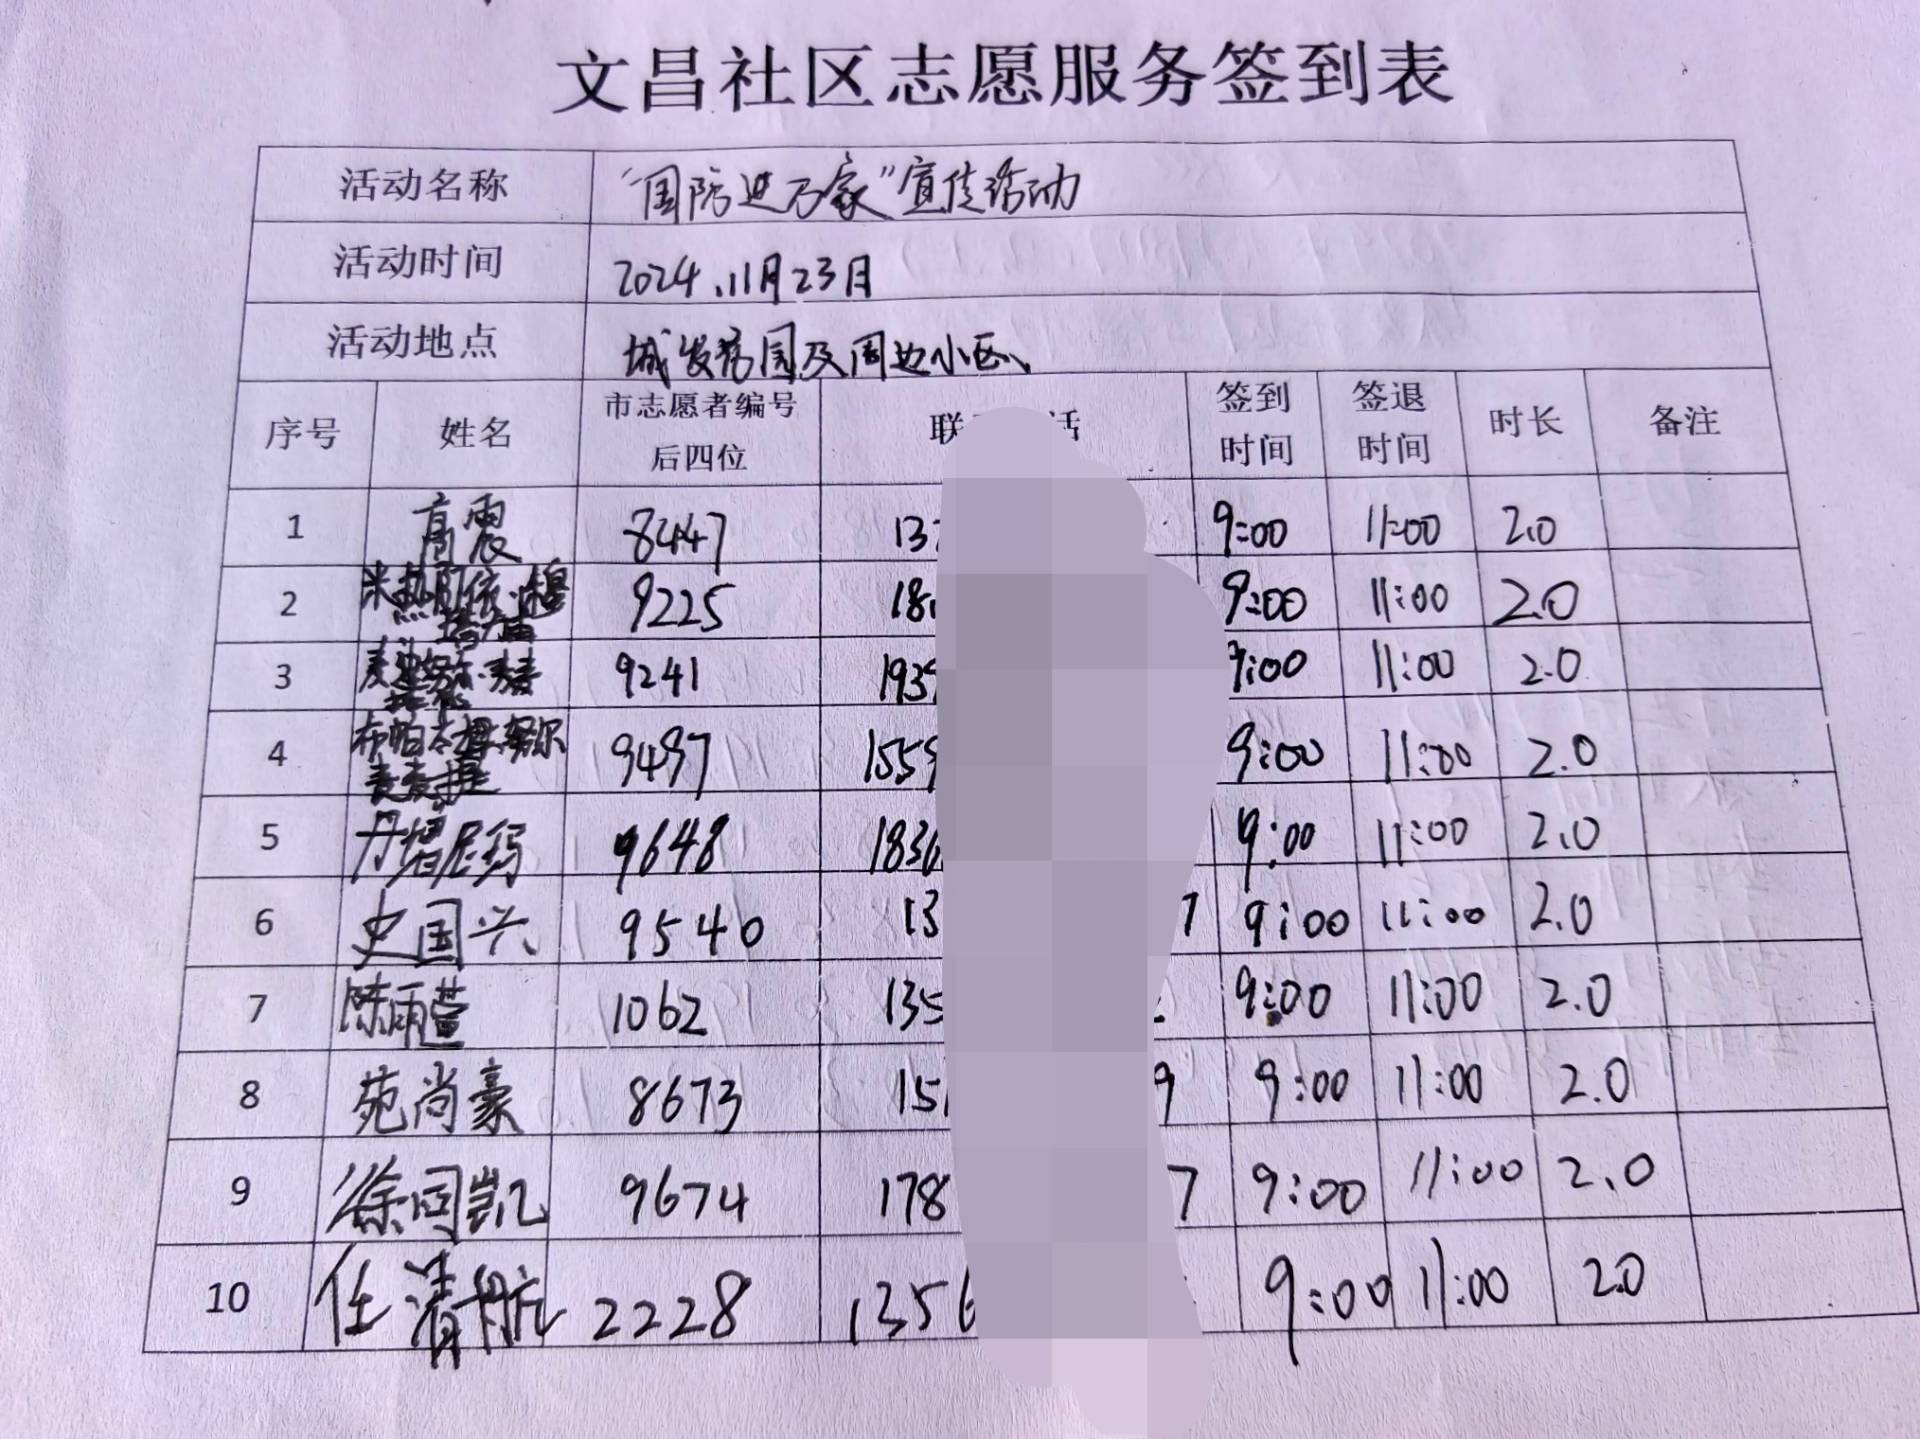 文昌社区志愿服务签到表
活动名称 "国防进万家"宣传活动
活动时间 2024.11月23日
活动地点 城发秀园及周边小区
序号 姓名 市志愿者编号后四位 联 话 签到时间 签退时间 时长 备注
1 高震 8447 13 9:00 11:00 2.0
2 米热阿依·穆 9225 18 9:00 11:00 2.0
3 麦迪努尔·麦麦 9241 193 9:00 11:00 2.0
4 布帕太姆·努尔麦麦提 9497 1559 9:00 11:00 2.0
5 丹增尼玛 9648 1836 9:00 11:00 2.0
6 史国兴 9540 13 7 9:00 11:00 2.0
7 陈雨萱 1062 135 9:00 11:00 2.0
8 苑尚豪 8673 15 9 9:00 11:00 2.0
9 徐同凯 9674 178 7 9:00 11:00 2.0
10 任清航 2228 1356 9:00 11:00 2.0